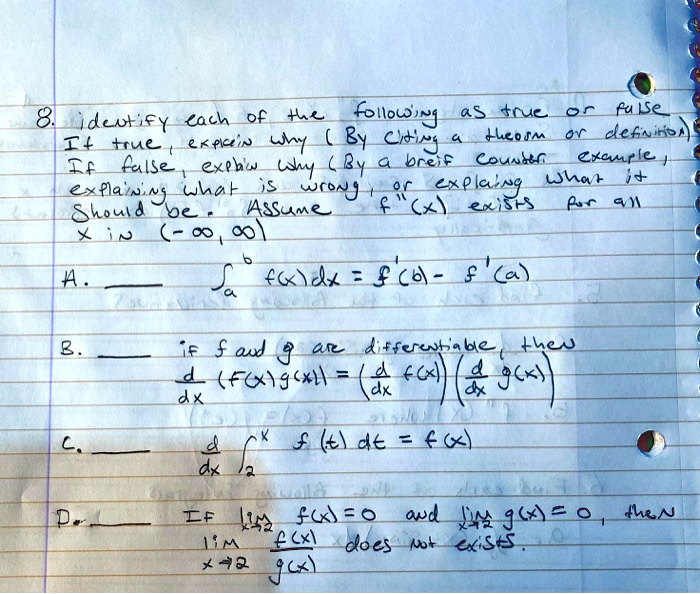 8. identify each of the following as true or false
If true, explain why ( By citing a theorm or definition)
If false, explain why ( By a breif counter example,
explaining what is wrong, or explaing what it
should be. Assume f''(x) exists for all
x in (-∞, ∞)
A. ____ ∫_a^b f(x)dx = f'(b) - f'(a)
B. ____ if f and g are differentiable, then
d/dx (f(x)g(x)) = (d/dx f(x)) (d/dx g(x))
C. ____ d/dx ∫_2^x f(t) dt = f(x)
D. ____ If lim x→2 f(x) = 0 and lim x→2 g(x) = 0, then
lim x→2 f(x)/g(x) does not exists.